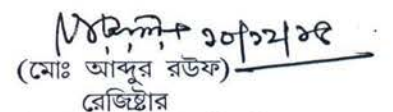 ১০/১২/১৫
(মোঃ আব্দুর রউফ)
রেজিষ্টার